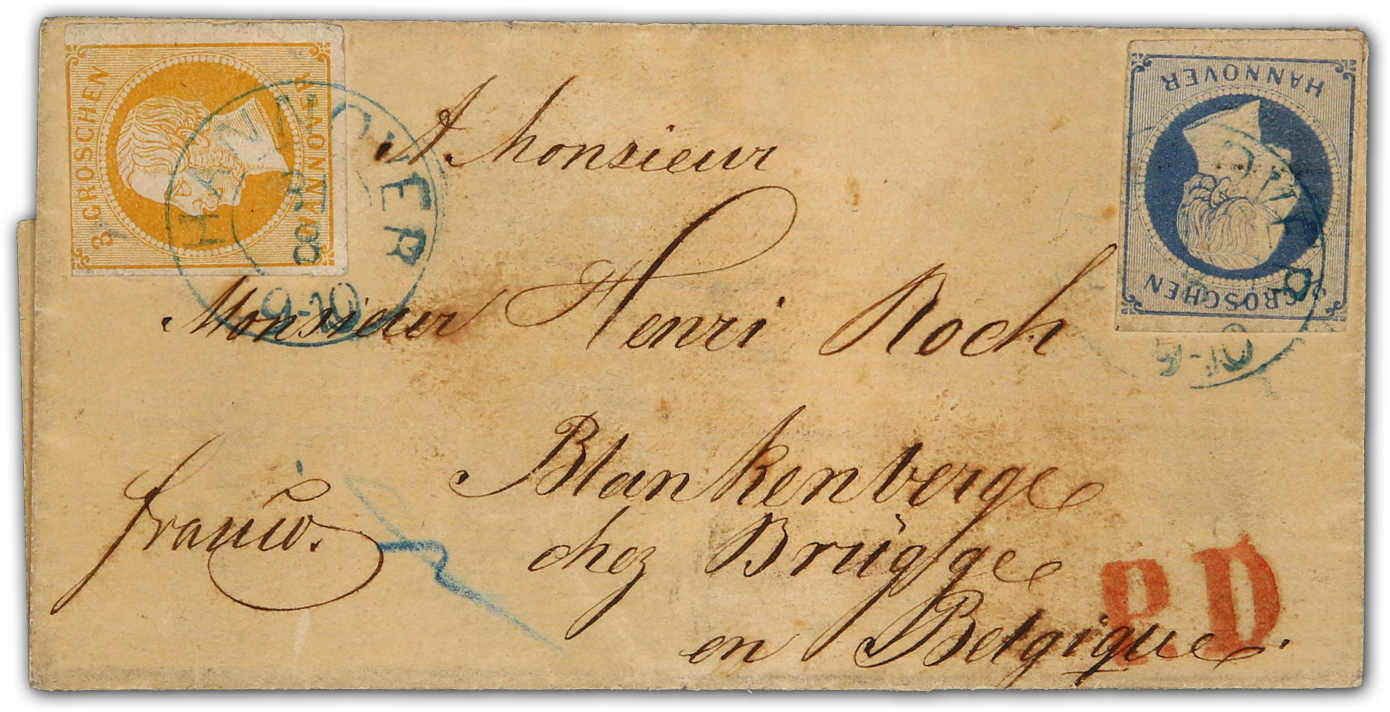 3 GROSCHEN
HANNOVER
HANNOVER
8 8
9-10
HANNOVER
2 GROSCHEN
9-10
A Monsieur
Monsieur Henri Roch
Blankenberge
franco.
chez Brügge
en Belgique.
P.D